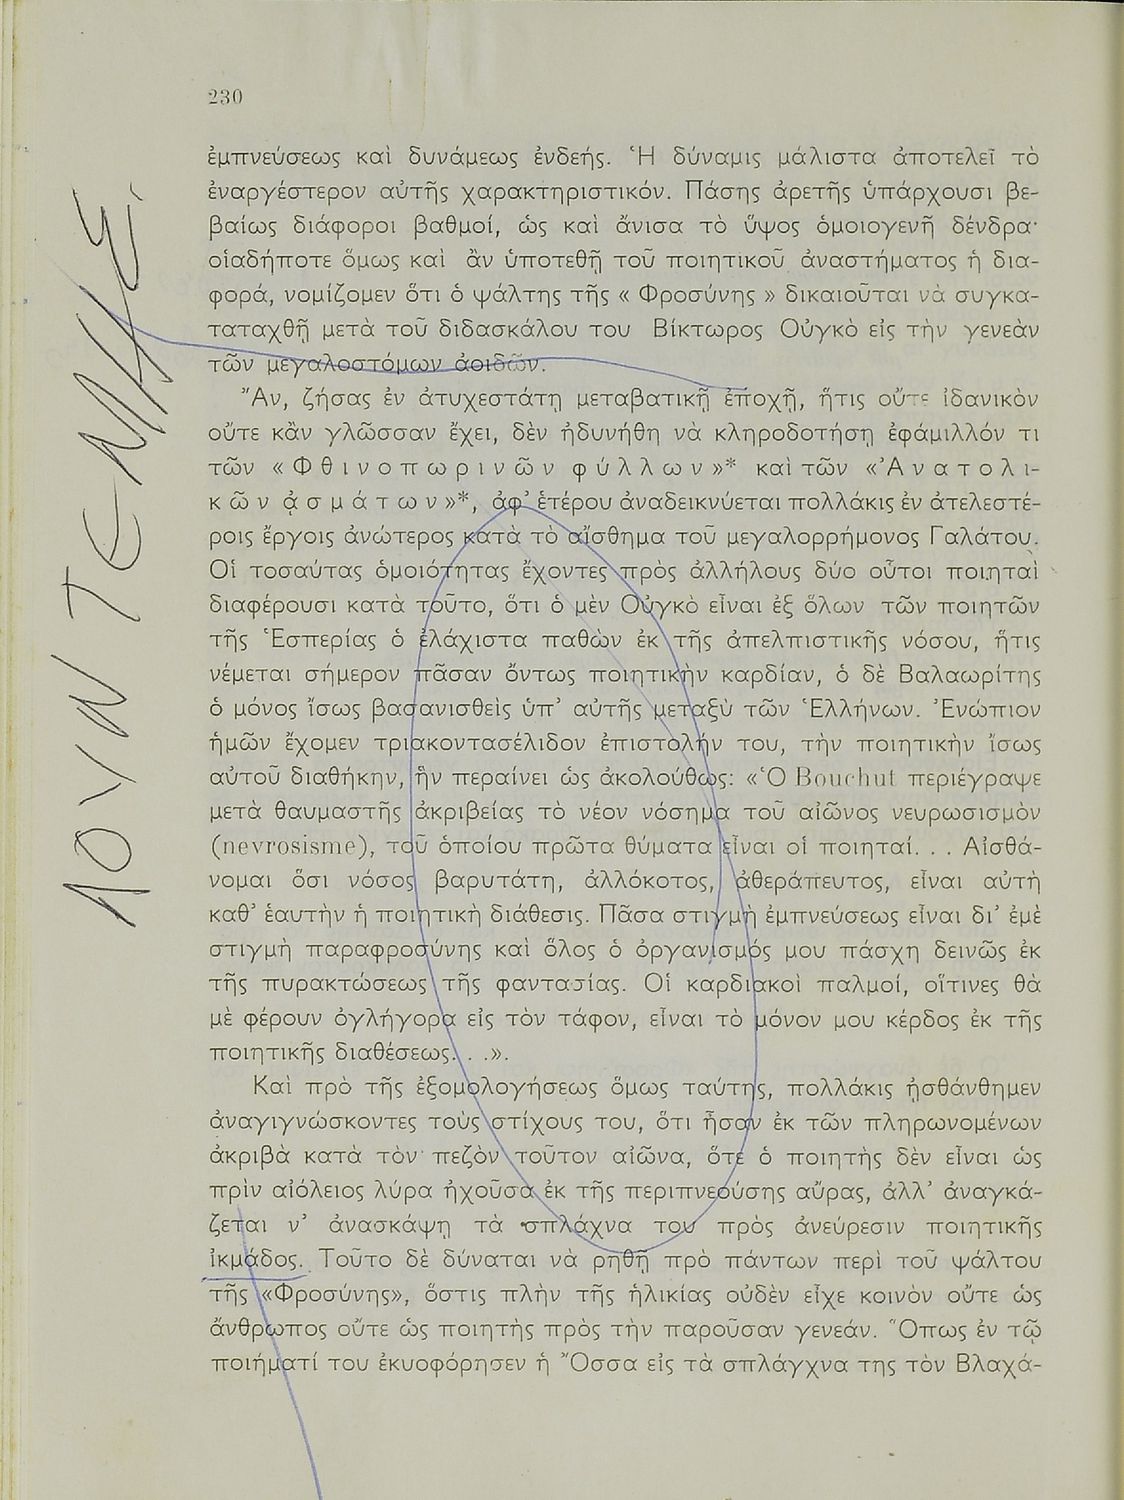 230
ἐμπνεύσεως καὶ δυνάμεως ἐνδεής. Ἡ δύναμις μάλιστα ἀποτελεῖ τὸ
ἐναργέστερον αὐτῆς χαρακτηριστικόν. Πάσης ἀρετῆς ὑπάρχουσι βε-
βαίως διάφοροι βαθμοί, ὡς καὶ ἄνισα τὸ ὕψος ὁμοιογενῆ δένδρα·
οἱαδήποτε ὅμως καὶ ἂν ὑποτεθῇ τοῦ ποιητικοῦ ἀναστήματος ἡ δια-
φορά, νομίζομεν ὅτι ὁ ψάλτης τῆς « Φροσύνης » δικαιοῦται νὰ συγκα-
ταταχθῇ μετὰ τοῦ διδασκάλου του Βίκτωρος Οὑγκὸ εἰς τὴν γενεὰν
τῶν μεγαλοστόμων ἀοιδῶν.
Ἄν, ζήσας ἐν ἀτυχεστάτῃ μεταβατικῇ ἐποχῇ, ἥτις οὔτε ἰδανικὸν
οὔτε κἂν γλῶσσαν ἔχει, δὲν ἠδυνήθη νὰ κληροδοτήσῃ ἐφάμιλλόν τι
τῶν « Φ θ ι ν ο π ω ρ ι ν ῶ ν φ ύ λ λ ω ν »* καὶ τῶν «Ἀ ν α τ ο λ ι-
κ ῶ ν ᾀ σ μ ά τ ω ν »*, ἀφ' ἑτέρου ἀναδεικνύεται πολλάκις ἐν ἀτελεστέ-
ροις ἔργοις ἀνώτερος κατὰ τὸ αἴσθημα τοῦ μεγαλορρήμονος Γαλάτου.
Οἱ τοσαύτας ὁμοιότητας ἔχοντες πρὸς ἀλλήλους δύο οὗτοι ποιηταὶ
διαφέρουσι κατὰ τοῦτο, ὅτι ὁ μὲν Οὑγκὸ εἶναι ἐξ ὅλων τῶν ποιητῶν
τῆς Ἑσπερίας ὁ ἐλάχιστα παθὼν ἐκ τῆς ἀπελπιστικῆς νόσου, ἥτις
νέμεται σήμερον πᾶσαν ὄντως ποιητικὴν καρδίαν, ὁ δὲ Βαλαωρίτης
ὁ μόνος ἴσως βασανισθεὶς ὑπ' αὐτῆς μεταξὺ τῶν Ἑλλήνων. Ἐνώπιον
ἡμῶν ἔχομεν τριακοντασέλιδον ἐπιστολήν του, τὴν ποιητικὴν ἴσως
αὐτοῦ διαθήκην, ἣν περαίνει ὡς ἀκολούθως: «Ὁ Bouchut περιέγραψε
μετὰ θαυμαστῆς ἀκριβείας τὸ νέον νόσημα τοῦ αἰῶνος νευρωσισμὸν
(nevrosisme), τοῦ ὁποίου πρῶτα θύματα εἶναι οἱ ποιηταί. . . Αἰσθά-
νομαι ὅσι νόσος βαρυτάτη, ἀλλόκοτος, ἀθεράπευτος, εἶναι αὐτὴ
καθ' ἑαυτὴν ἡ ποιητικὴ διάθεσις. Πᾶσα στιγμὴ ἐμπνεύσεως εἶναι δι' ἐμὲ
στιγμὴ παραφροσύνης καὶ ὅλος ὁ ὀργανισμός μου πάσχη δεινῶς ἐκ
τῆς πυρακτώσεως τῆς φαντασίας. Οἱ καρδιακοὶ παλμοί, οἵτινες θὰ
μὲ φέρουν ὀγλήγορα εἰς τὸν τάφον, εἶναι τὸ μόνον μου κέρδος ἐκ τῆς
ποιητικῆς διαθέσεως. . .».
Καὶ πρὸ τῆς ἐξομολογήσεως ὅμως ταύτης, πολλάκις ᾐσθάνθημεν
ἀναγιγνώσκοντες τοὺς στίχους του, ὅτι ἦσαν ἐκ τῶν πληρωνομένων
ἀκριβὰ κατὰ τὸν πεζὸν τοῦτον αἰῶνα, ὅτε ὁ ποιητὴς δὲν εἶναι ὡς
πρὶν αἰόλειος λύρα ἠχοῦσα ἐκ τῆς περιπνεούσης αὔρας, ἀλλ' ἀναγκά-
ζεται ν' ἀνασκάψῃ τὰ σπλάχνα του πρὸς ἀνεύρεσιν ποιητικῆς
ἰκμάδος. Τοῦτο δὲ δύναται νὰ ρηθῇ πρὸ πάντων περὶ τοῦ ψάλτου
τῆς «Φροσύνης», ὅστις πλὴν τῆς ἡλικίας οὐδὲν εἶχε κοινὸν οὔτε ὡς
ἄνθρωπος οὔτε ὡς ποιητὴς πρὸς τὴν παροῦσαν γενεάν. Ὅπως ἐν τῷ
ποιήματί του ἐκυοφόρησεν ἡ Ὄσσα εἰς τὰ σπλάγχνα της τὸν Βλαχά-